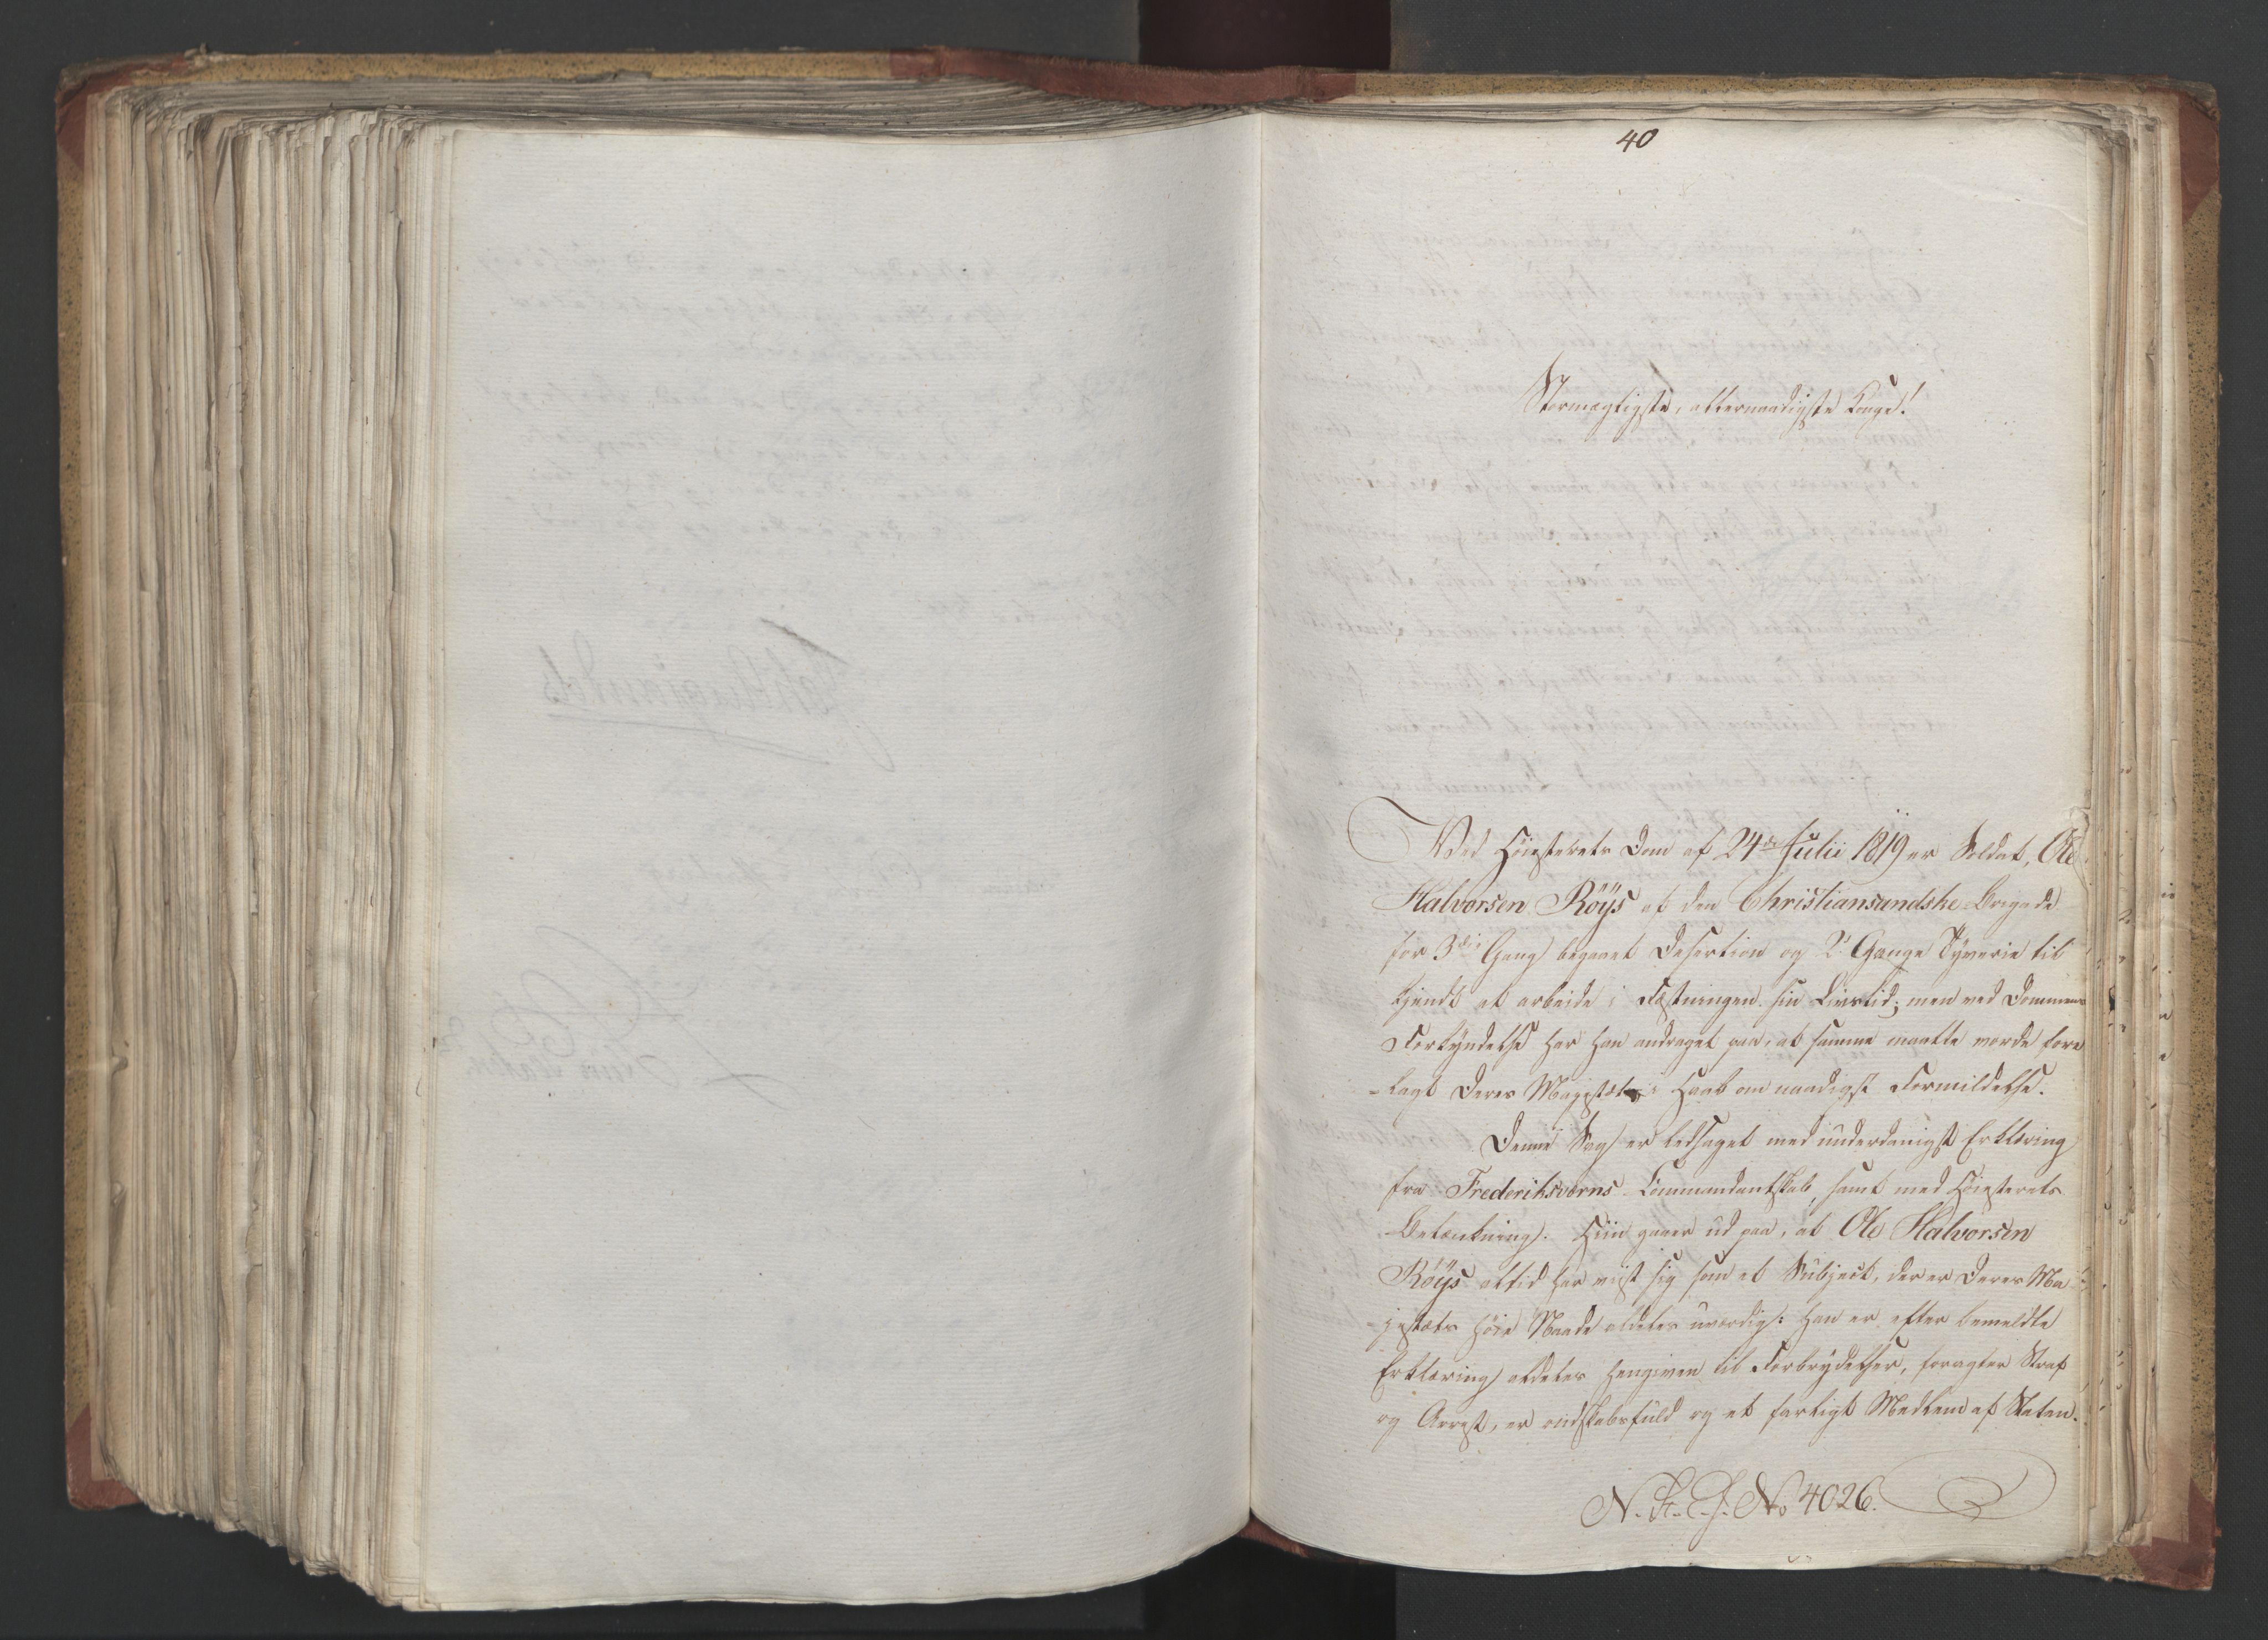 40
Stormægtigste, allernaadigste Konge!
Ved Høiesterets Dom af 24de Julii 1819 er Soldat, Ole
Halvorsen Röÿs af den Christiansandske Brigade
for 3die Gang begaaet Desertion og 2 Gange Tyverie til
kjendt at arbeide i Fæstningen sin Livstid; men ved Dommens
Forkyndelse har han andraget paa, at samme maatte vorde fore
-lagt Deres Majestæt i Haab om naadigst Formildelse.
Denne Sag er ledsaget med underdanigst Erklæring
fra Frederiksværns Commandantskab, samt med Høiesterets
Betænkning. Hiin gaaer ud paa, at Ole Halvorsen
Röÿs altid har viist sig som et Subject, der er Deres Ma
-jestæts høie Naade aldeles uværdig: han er efter bemeldte
Erklæring aldeles hengiven til Forbrydelser, foragter Straf
og Arrest, er ondskabsfuld og et farligt Medlem af Staten.
N. R. J. No 4026.